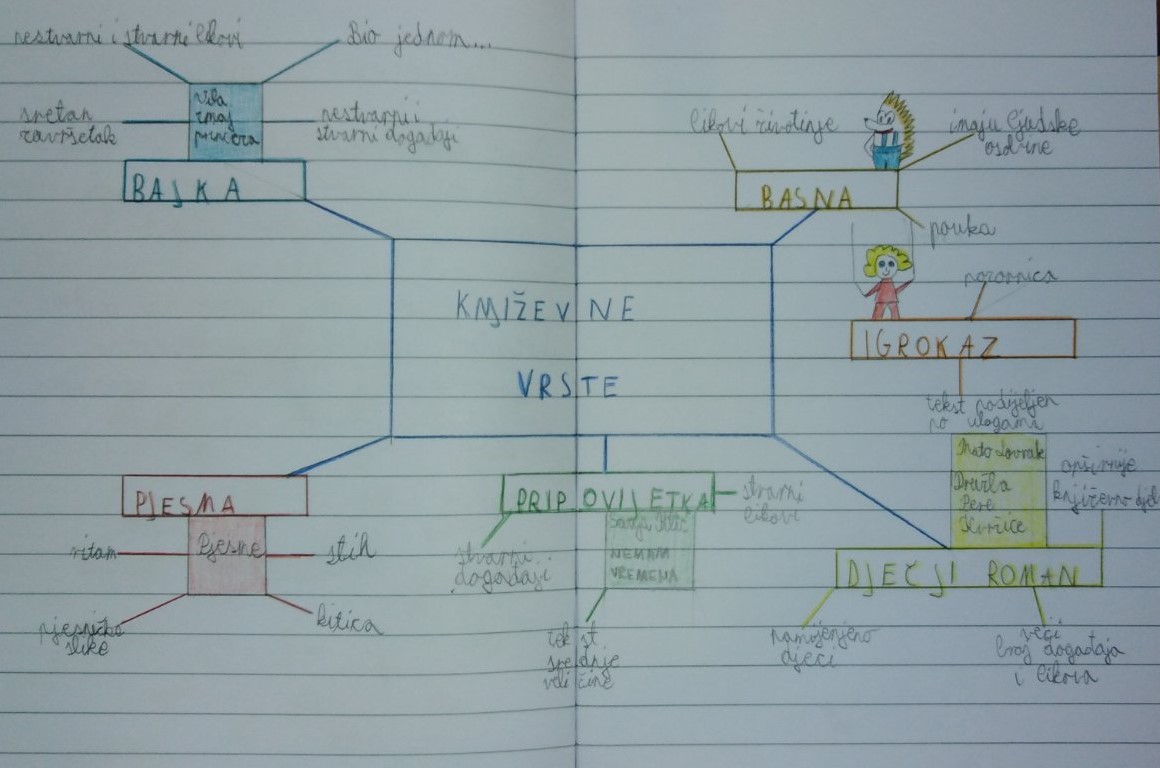 nestvarni i stvarni likovi
Bio jednom...
vila
zmaj
princeza
sretan
završetak
nestvarni i
stvarni događaji
BAJKA
likovi životinje
imaju ljudske
osobine
BASNA
pouka
pozornica
IGROKAZ
tekst podijeljen
po ulogama
KNJIŽEVNE
VRSTE
Mato Lovrak
Družba
Pere
Kvržice
opširnije
književno djel
DJEČJI ROMAN
namijenjeno
djeci
veći
broj događaja
i likova
PRIPOVIJETKA
stvarni
likovi
NEMAM
VREMENA
stvarni
događaji
tekst
srednje
veličine
PJESMA
Pjesme
ritam
stih
pjesničke
slike
kitica